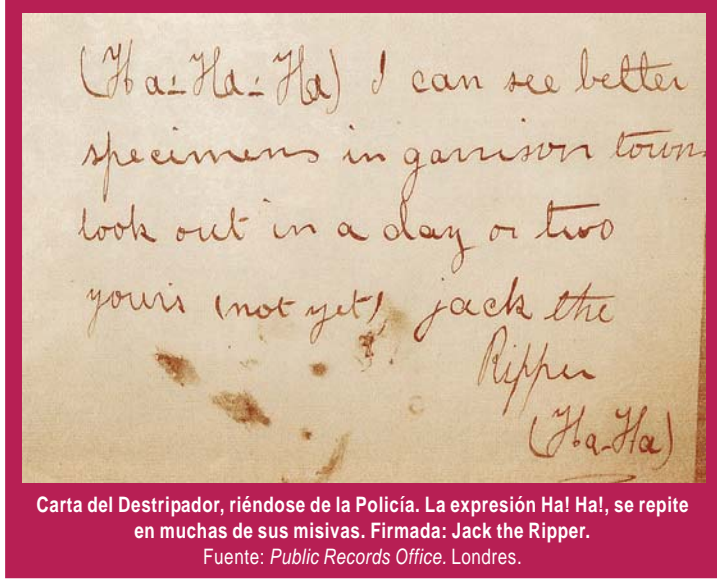 (Ha-Ha-Ha) I can see better
specimens in garrison towns
look out in a day or two
yours (not yet) jack the
Ripper
(Ha-Ha)
Carta del Destripador, riéndose de la Policía. La expresión Ha! Ha!, se repite
en muchas de sus misivas. Firmada: Jack the Ripper.
Fuente: Public Records Office. Londres.